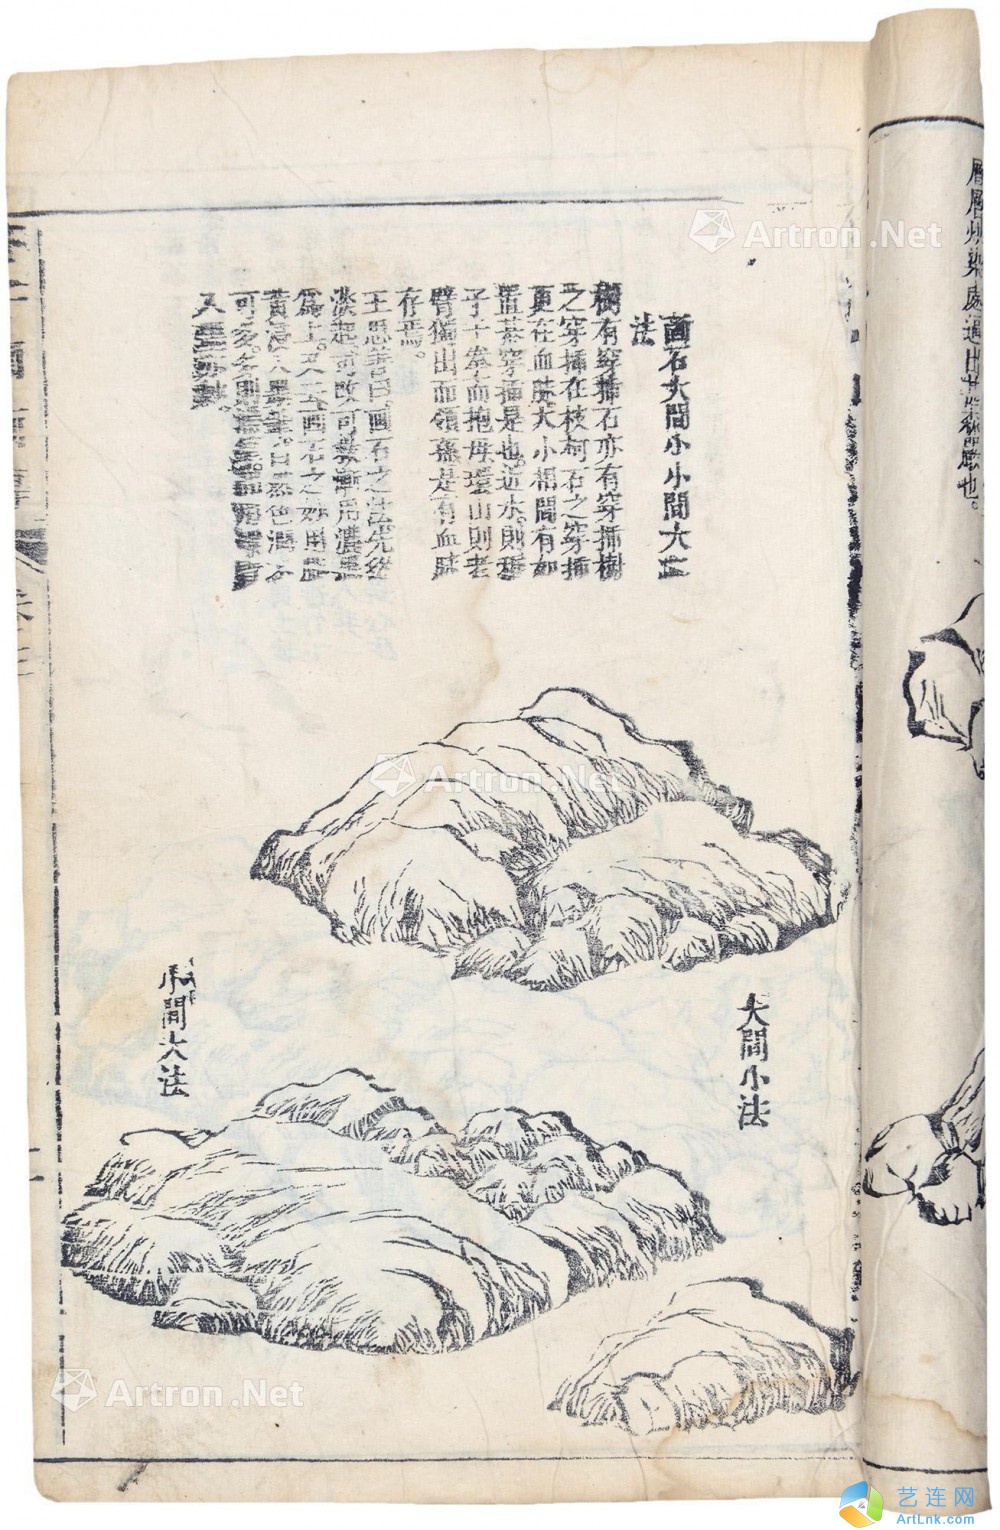 層層烘染處逼出
也。
畫石大間小小間大之
法
樹有穿插石亦有穿插樹
之穿插在枝柯石之穿插
更在血脉大小相間有如
置棊穿插是也近水則稚
子千拳而抱母環山則老
臂獨出而領孫是有血脉
存焉。
王思善曰画石之法先從
淡起可改可救漸用濃墨
爲上。又画石之妙用藤
黄浸入墨筆。自然色潤不
可多。多則滯筆間用螺青
入墨亦妙
大間小法
小間大法
Artron.Net
Artron.Net
Artron.Net
艺连网
ArtLnk.com